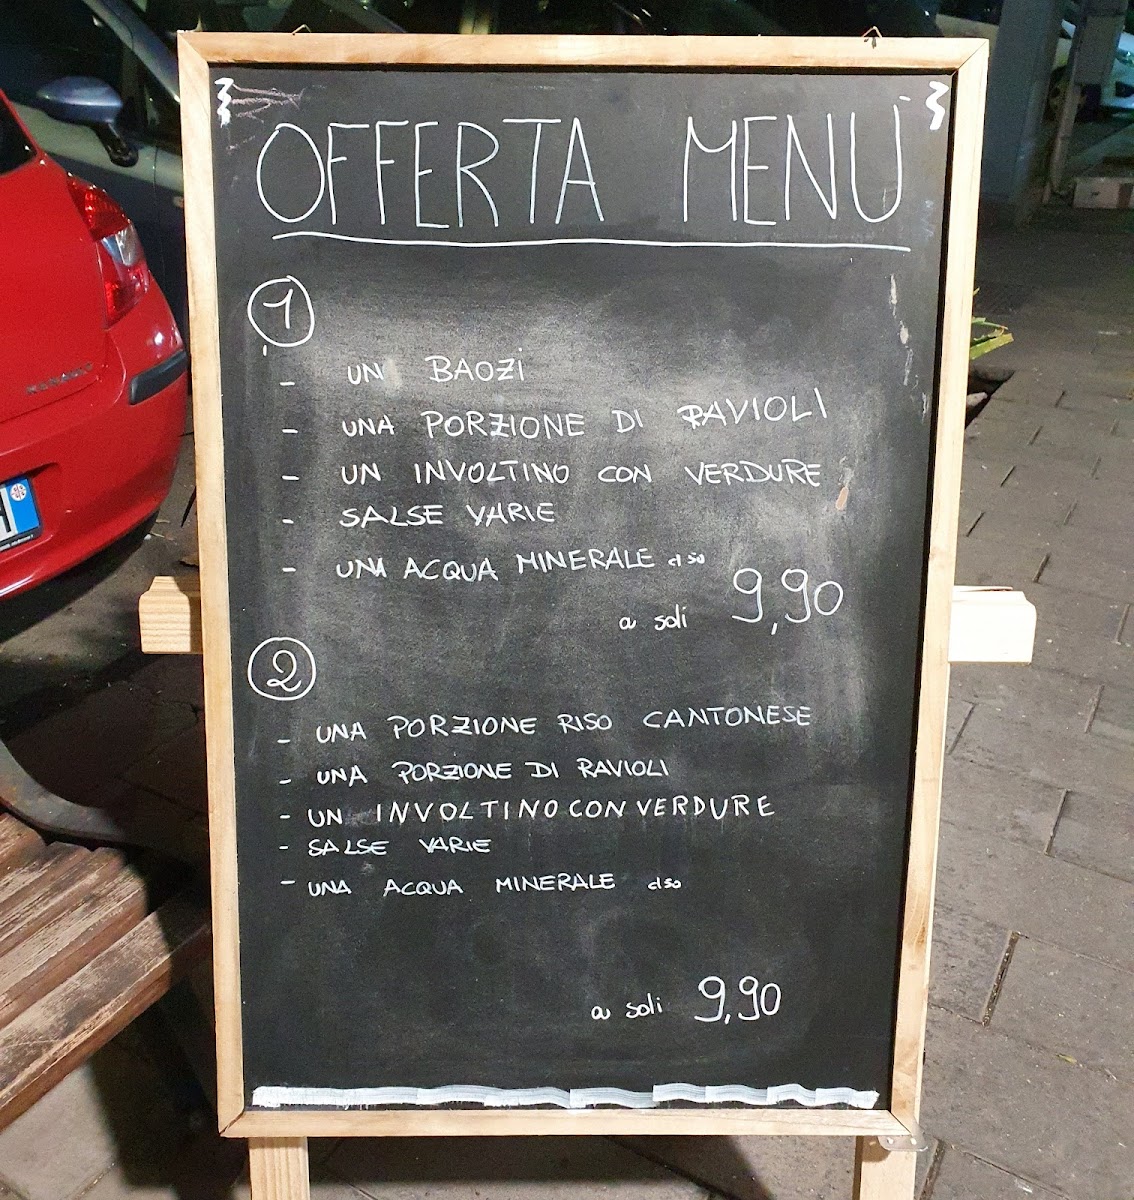 OFFERTA MENÙ
1
- UN BAOZI
- UNA PORZIONE DI RAVIOLI
- UN INVOLTINO CON VERDURE
- SALSE VARIE
- UNA ACQUA MINERALE
a soli 9,90
2
- UNA PORZIONE RISO CANTONESE
- UNA PORZIONE DI RAVIOLI
- UN INVOLTINO CON VERDURE
- SALSE VARIE
- UNA ACQUA MINERALE
a soli 9,90